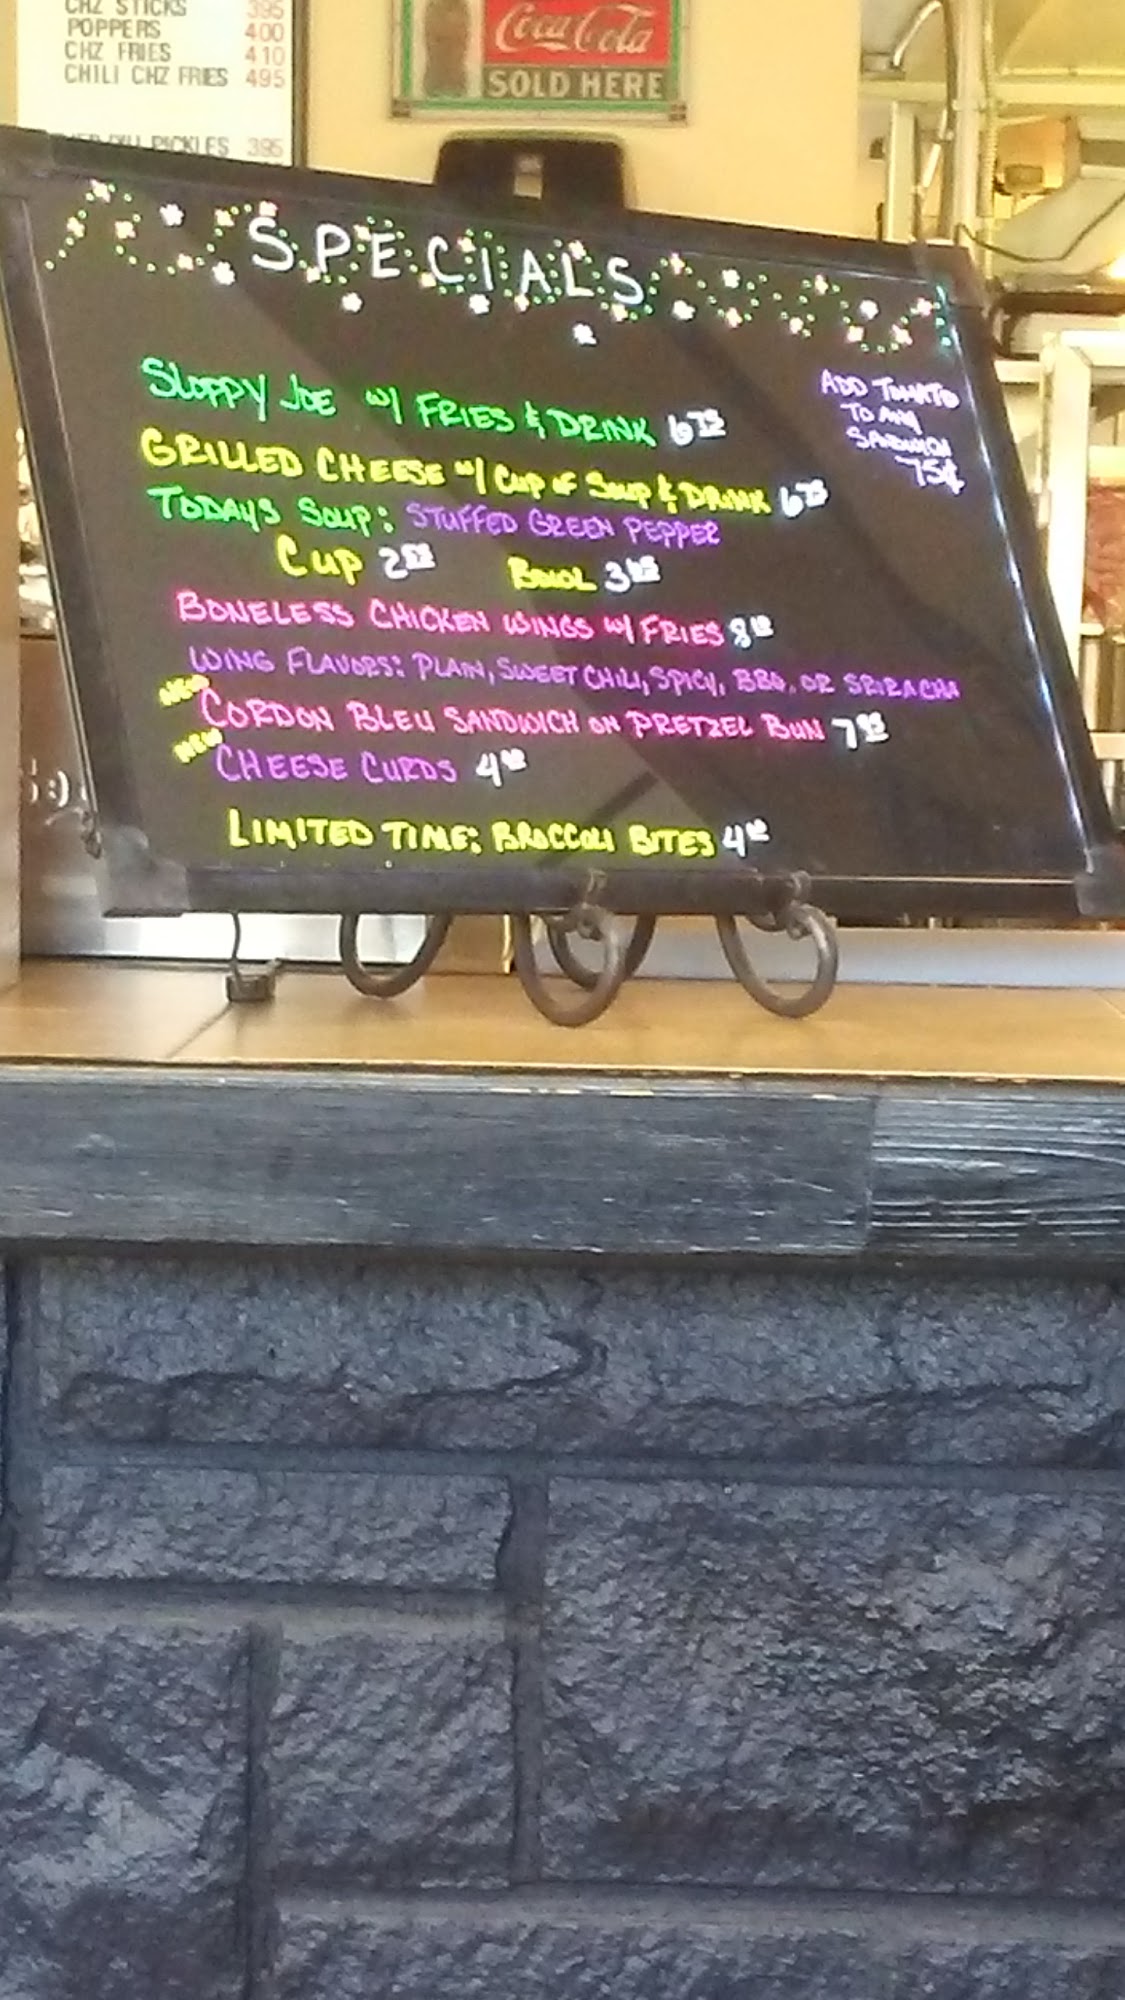 CHZ STICKS 395
POPPERS 400
CHZ FRIES 410
CHILI CHZ FRIES 495
PICKLES 395
Coca-Cola
SOLD HERE
SPECIALS
SLOPPY JOE w/ FRIES & DRINK 6 75
GRILLED CHEESE w/ CUP OF SOUP & DRINK 6 75
TODAYS SOUP: STUFFED GREEN PEPPER
CUP 2 BOWL 3
BONELESS CHICKEN WINGS w/ FRIES 8
WING FLAVORS: PLAIN, SWEET CHILI, SPICY, BBQ, OR SRIRACHA
NEW CORDON BLEU SANDWICH ON PRETZEL BUN 7
NEW CHEESE CURDS 4
LIMITED TIME: BROCCOLI BITES 4
ADD TOMATO
TO ANY
SANDWICH
75¢